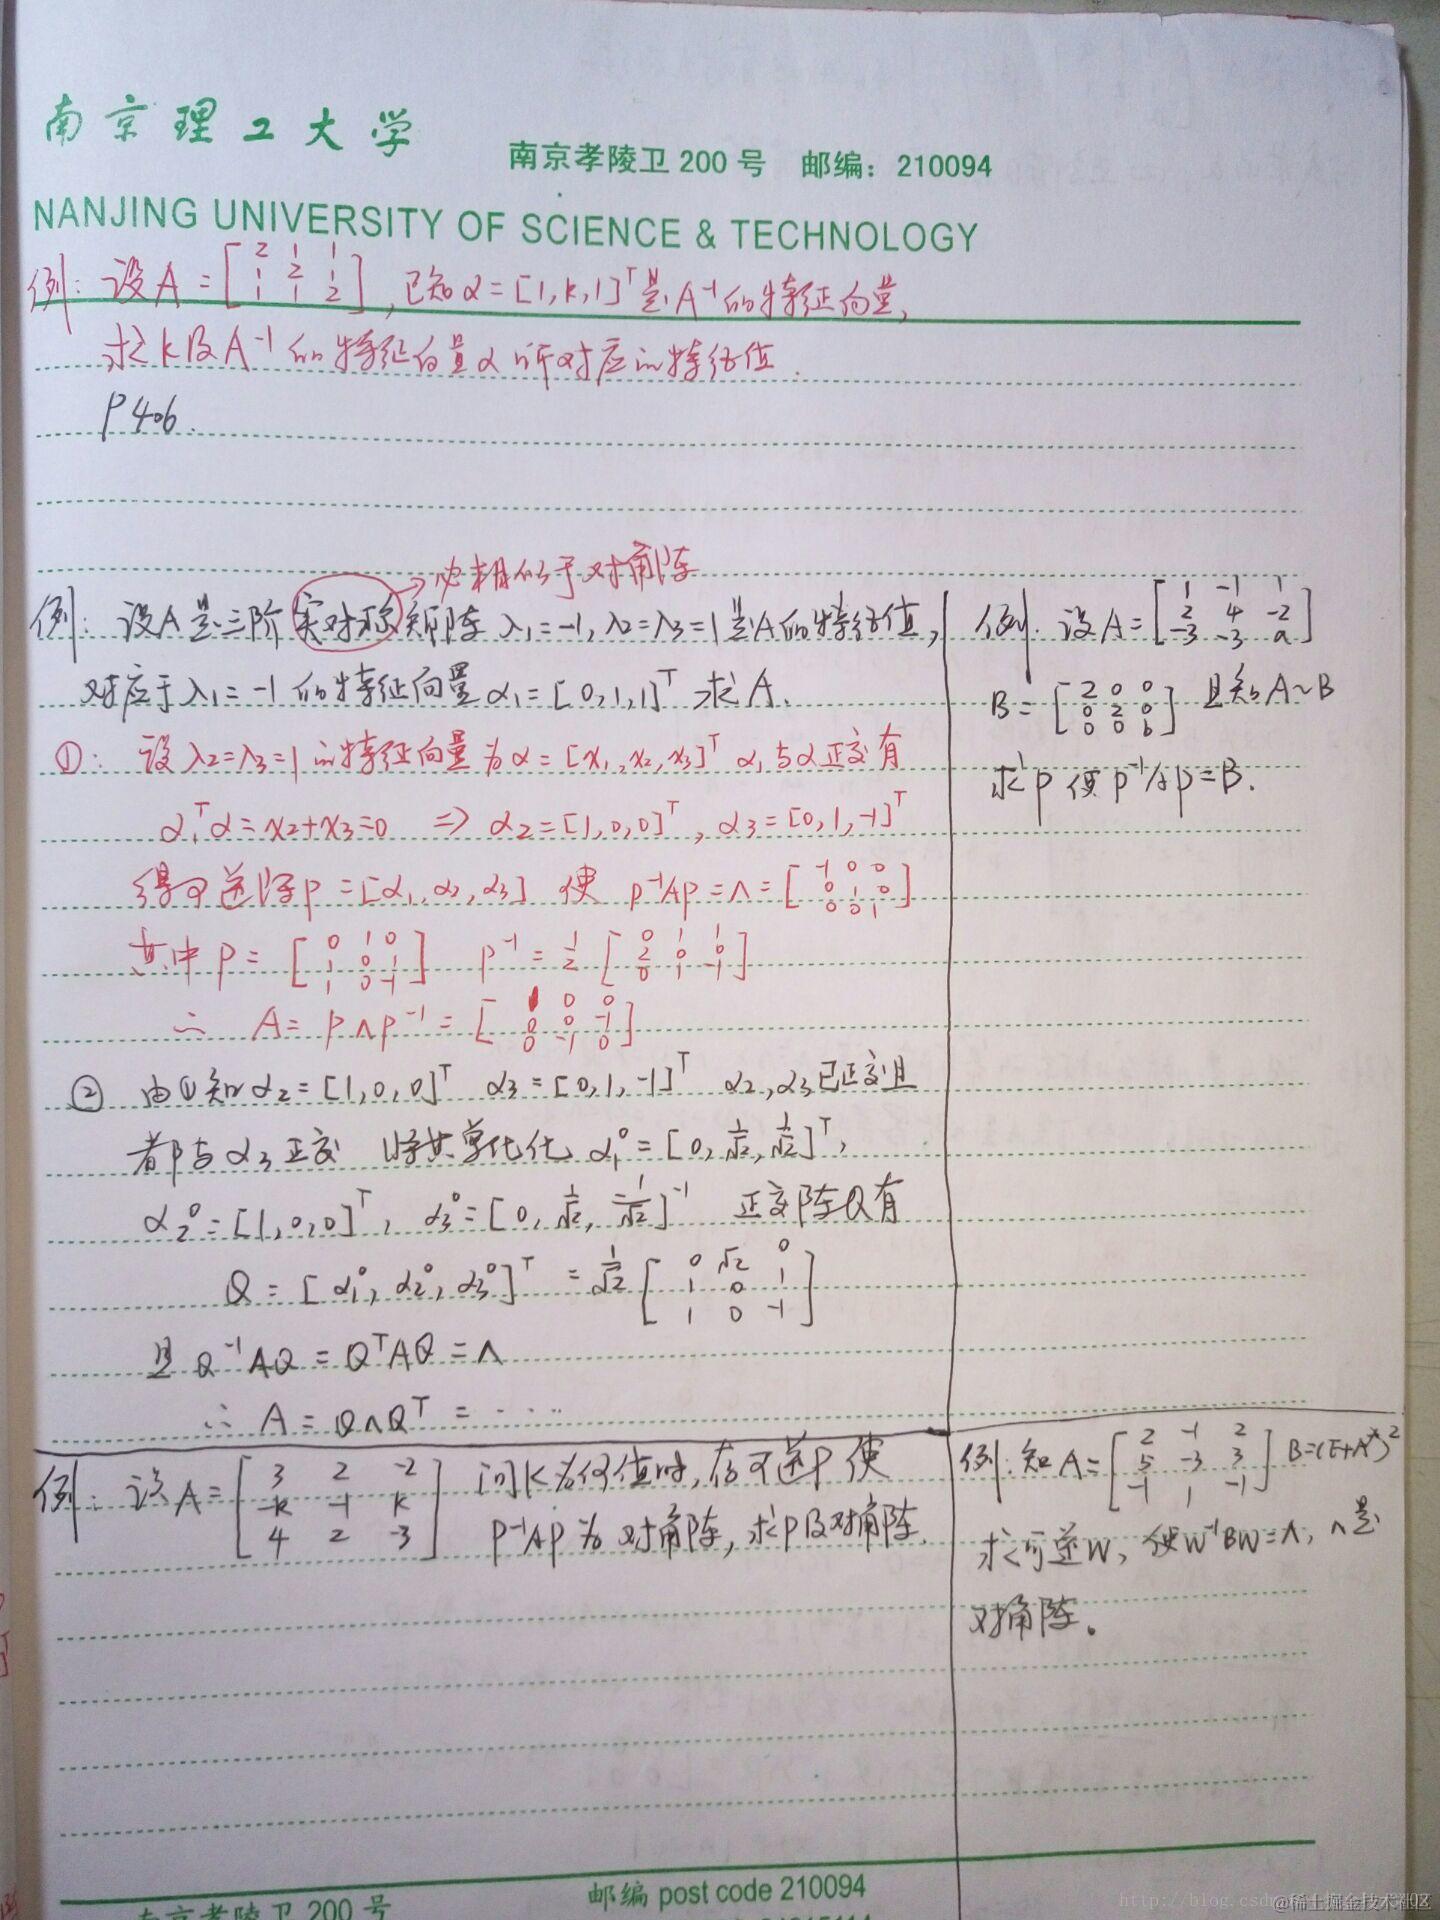 南京理工大学
南京孝陵卫 200 号 邮编：210094
NANJING UNIVERSITY OF SCIENCE & TECHNOLOGY
例：设A = [2 1 1; 1 2 1; 1 1 2]，已知α = [1, k, 1]ᵀ是A⁻¹的特征向量，
求k及A⁻¹的特征向量α所对应的特征值.
P406.
必相似于对角阵
例：设A是三阶实对称矩阵 λ₁=-1, λ₂=λ₃=1是A的特征值，
对应于λ₁=-1的特征向量α₁=[0,1,1]ᵀ 求A.
①：设λ₂=λ₃=1的特征向量为α=[x₁,x₂,x₃]ᵀ α₁与α正交有
α₁ᵀα=x₂+x₃=0 ⇒ α₂=[1,0,0]ᵀ, α₃=[0,1,-1]ᵀ
得可逆阵P=[α₁,α₂,α₃] 使 P⁻¹AP=Λ=[-1 0 0; 0 1 0; 0 0 1]
其中P=[0 1 0; 1 0 1; 1 0 -1] P⁻¹=1/2[0 1 1; 2 0 0; 0 1 -1]
∴ A=PΛP⁻¹=[1 0 0; 0 0 -1; 0 -1 0]
② 由①知α₂=[1,0,0]ᵀ α₃=[0,1,-1]ᵀ α₂,α₃已正交且
都与α₃正交 将其单化化 α₁⁰=[0, 1/√2, 1/√2]ᵀ,
α₂⁰=[1,0,0]ᵀ, α₃⁰=[0, 1/√2, -1/√2]⁻¹ 正交阵Q有
Q=[α₁⁰, α₂⁰, α₃⁰]ᵀ=1/√2[0 √2 0; 1 0 1; 1 0 -1]
且Q⁻¹AQ=QᵀAQ=Λ
∴ A=QΛQᵀ=·····
例. 设A=[1 -1 1; 2 4 -2; -3 -3 a]
B=[2 0 0; 0 2 0; 0 0 b] 且知A~B
求P使P⁻¹AP=B.
例：设A=[3 2 -2; -k -1 k; 4 2 -3] 问k为何值时，存可逆P使
P⁻¹AP为对角阵，求P及对角阵.
例：知A=[2 -1 2; 5 -3 3; -1 1 -1] B=(E+A*)²
求可逆W，使W⁻¹BW=Λ, Λ是
对角阵。
邮编 post code 210094
南京孝陵卫 200 号
http://blog.csd
@稀土掘金技术社区